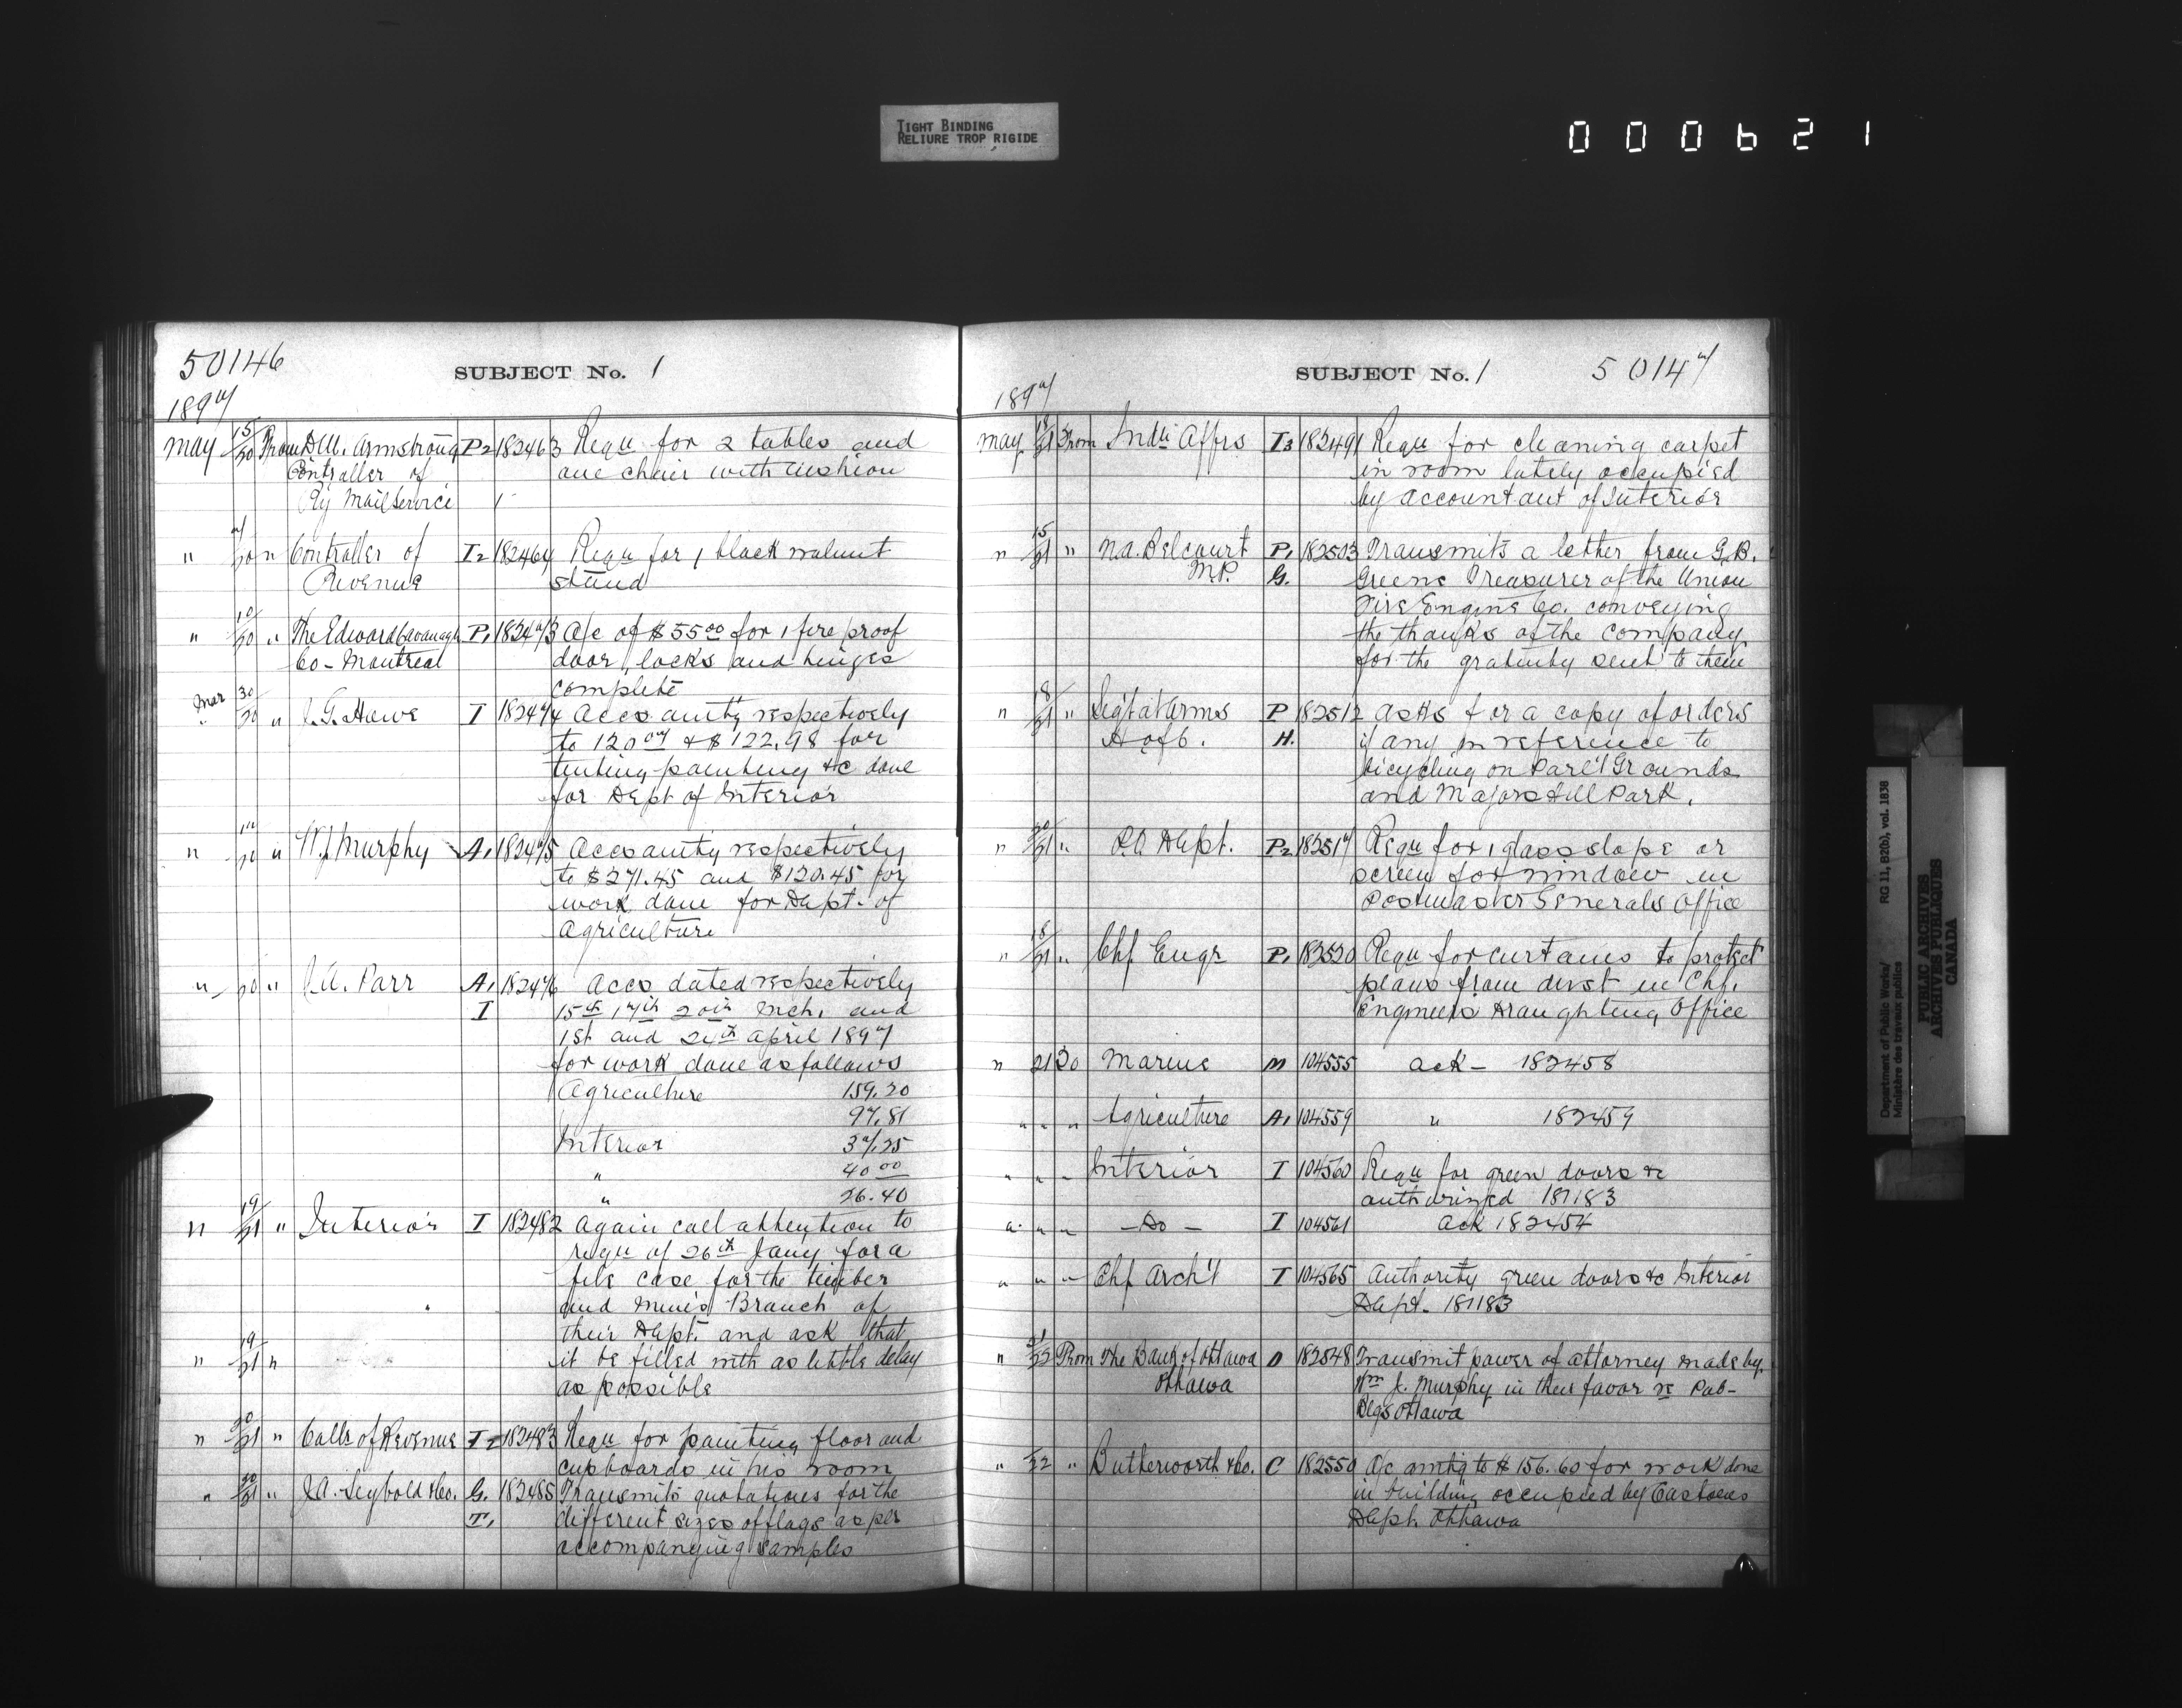 TIGHT BINDING
RELIURE TROP RIGIDE
000621
50146
SUBJECT No. 1
1897
May 15/20 From D.M. Armstrong P2 182463 Requ for 2 tables and
Controller of one chair with cushion
Ry Mail Service
" 7/20 " Controller of I2 182464 Requ for 1 black walnut
Revenue stand
" 10/20 " The Edward Cavanagh P1 182473 A/c of $55.00 for 1 fire proof
Co - Montreal door, locks and hinges
complete
Mar 30/20 " J.G. Howe I 182474 Accs amtg respectively
to 120.07 & $122.98 for
tinting painting &c done
for Dept of Interior
" /20 " W.J. Murphy A1 182475 Accs amtg respectively
to $271.45 and $120.45 for
work done for Dept. of
Agriculture
" /20 " J.A. Parr A1 182476 Accs dated respectively
I 15th 17th 20th Mch, and
1st and 24th April 1897
for work done as follows
Agriculture 159.20
97.81
Interior 37.25
" 40.00
" 26.40
" 19/21 " Interior I 182482 Again call attention to
requ of 26th Jany for a
file case for the timber
and Mines Branch of
their Dept. and ask that
" 19/21 " it be filled with as little delay
as possible
" 20/21 " Collr of Revenue I2 182483 Requ for painting floor and
cupboards in his room
" 20/21 " J.A. Seybold & Co. G. 182485 Transmits quotations for the
T1 different sizes of flags as per
accompanying samples
SUBJECT No. 1 50147
1897
May 18/21 From Indn Affrs I3 182491 Requ for cleaning carpet
in room lately occupied
by accountant of Interior
" 15/21 " N.A. Belcourt P1 182503 Transmits a letter from G.B.
M.P. G. Greene Treasurer of the Union
Fire Engine Co. conveying
the thanks of the company
for the gratuity sent to them
" 18/21 " Sergt at Arms P 182512 Asks for a copy of orders
H of C. H. if any in reference to
bicycling on Parl't Grounds
and Majors Hill Park.
" 20/21 " P.O. Dept. P2 182517 Requ for 1 glass slope or
screen for window in
Postmaster Generals Office
" 18/21 " Chf Engr P1 182520 Requ for curtains to protect
plans from dust in Chf.
Engineers Draughting Office
" 21 To Marine M 104555 ack - 182458
" " " Agriculture A1 104559 " 182459
" " " Interior I 104560 Requ for green doors &c
authorized 181183
" " " - Do - I 104561 ack 182454
" " " Chf Arch't I 104565 Authority green doors &c Interior
Dept. 181183
" 21/22 From The Bank of Ottawa O 182548 Transmit power of attorney made by
Ottawa Wm J. Murphy in their favor re Pub-
Blgs Ottawa
" /22 " Butterworth & Co. C 182550 A/c amtg to $156.60 for work done
in building occupied by Customs
Dept. Ottawa
Department of Public Works/
Ministère des travaux publics
RG 11, B2(b), vol. 1838
PUBLIC ARCHIVES
ARCHIVES PUBLIQUES
CANADA